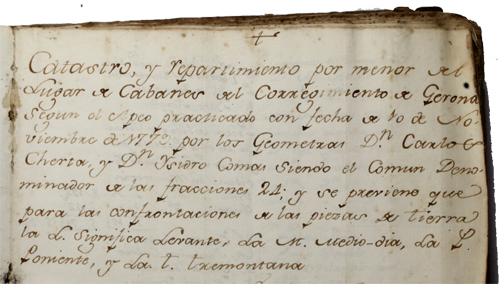 Catastro, y repartimiento por menor del
Lugar de Cabanes del Corregimiento de Gerona
Segun el apeo practicado con fecha de 10 de No-
viembre de 1772 por los Geometras D.n Carlos
Cherta, y D.n Ysidro Comas Siendo el Comun Deno-
minador de las fracciones 24; y se previene que
para las confrontaciones de las piezas de tierra
la L. significa Levante, La M. Medio-dia, La P.
Poniente, y La t. tremontana